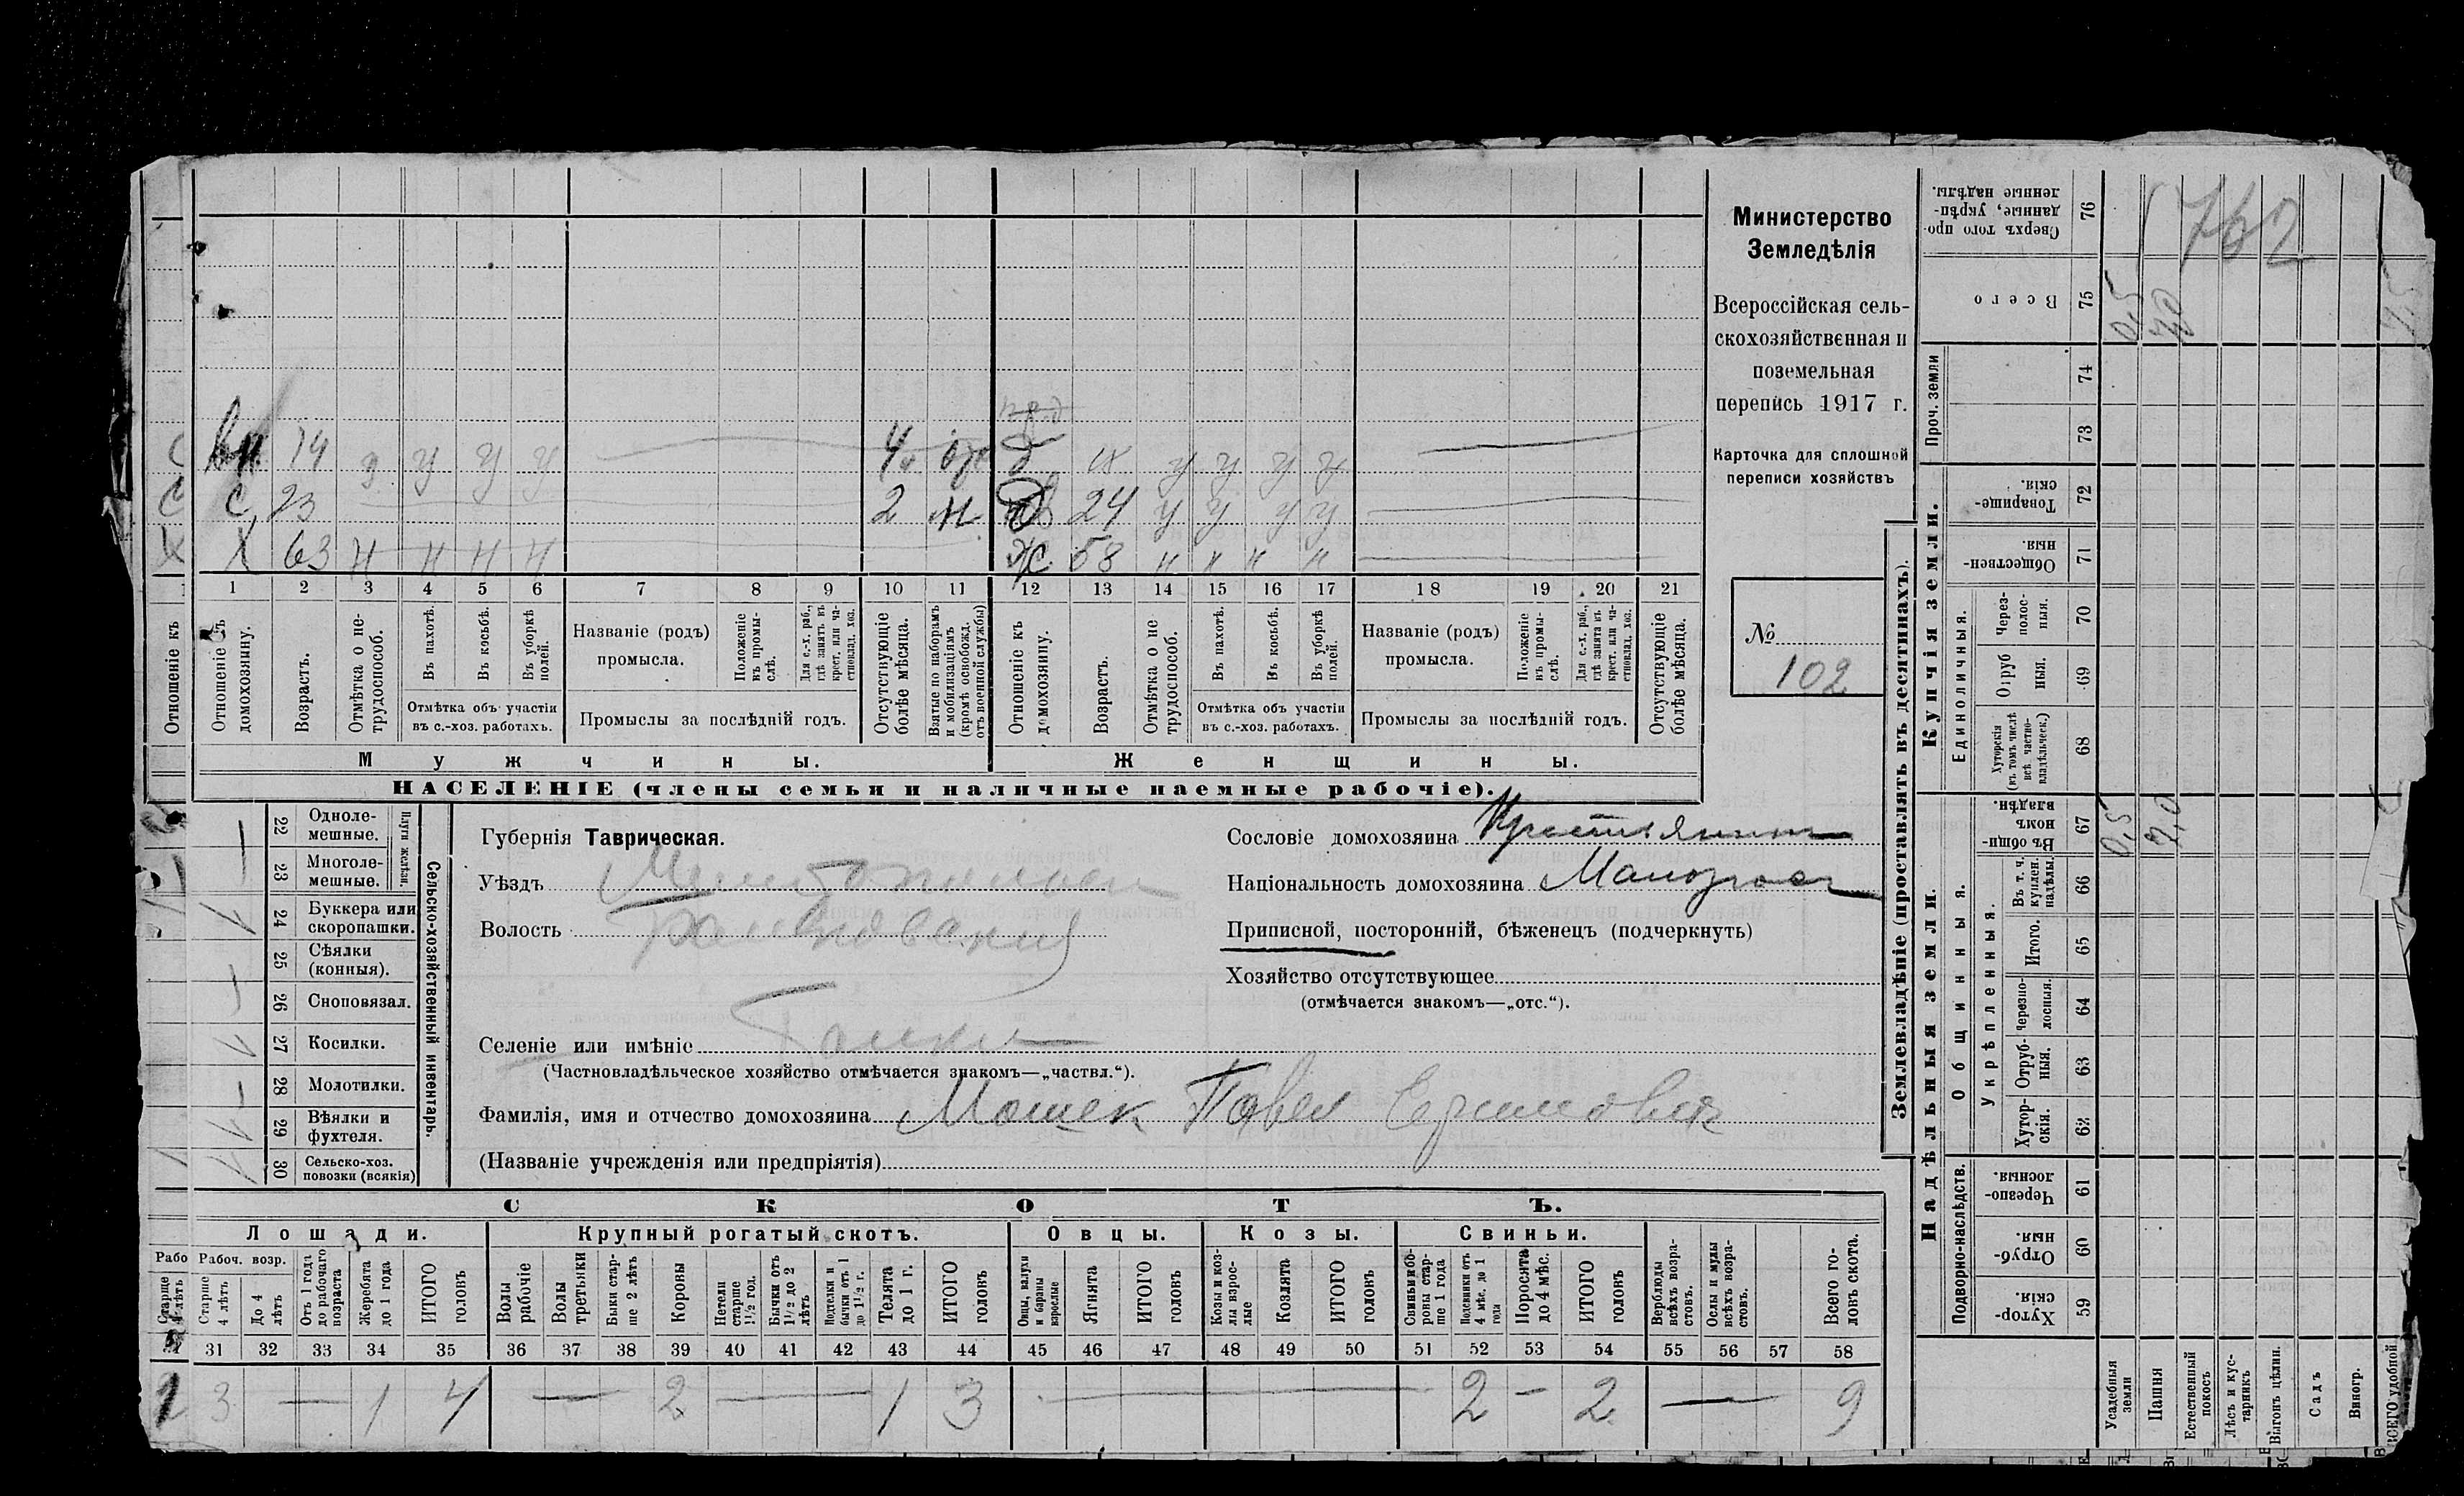 Министерство
Земледѣлія
Всероссійская сель-
скохозяйственная и
поземельная
перепись 1917 г.
Карточка для сплошной
переписи хозяйствъ
№
102
4
2 н
С 23 24 у у у у
Х 63 н н н н Ж 58 н н н н
1 2 3 4 5 6 7 8 9 10 11 12 13 14 15 16 17 18 19 20 21
Отношеніе къ
Отношеніе къ домохозяину.
Возрастъ.
Отмѣтка о не-трудоспособ.
Въ пахотѣ.
Въ косьбѣ.
Въ уборкѣ полей.
Отмѣтка объ участіи
въ с.-хоз. работахъ.
Названіе (родъ)
промысла.
Положеніе въ промы-слѣ.
Для с.-х. раб., гдѣ занятъ въ крест. или ча-стновлад. хоз.
Промыслы за послѣдній годъ.
Отсутствующіе болѣе мѣсяца.
Взятые по наборамъ и мобилизаціямъ (кромѣ освобожд. отъ военной службы)
Отношеніе къ домохозяину.
Возрастъ.
Отмѣтка о не трудоспособ.
Въ пахотѣ.
Въ косьбѣ.
Въ уборкѣ полей.
Отмѣтка объ участіи
въ с.-хоз. работахъ.
Названіе (родъ)
промысла.
Положеніе въ промы-слѣ.
Для с.-х. раб., гдѣ занята въ крест. или ча-стновлад. хоз.
Промыслы за послѣдній годъ.
Отсутствующіе болѣе мѣсяца.
Мужчины.
Женщины.
НАСЕЛЕНІЕ (члены семьи и наличные наемные рабочіе).
22 Одноле-мешные.
23 Многоле-мешные.
Плуги желѣзн.
24 Буккера или скоропашки.
25 Сѣялки (конныя).
26 Сноповязал.
27 Косилки.
28 Молотилки.
29 Вѣялки и фухтеля.
30 Сельско-хоз. повозки (всякія)
Сельско-хозяйственный инвентарь.
Губернія Таврическая.
Уѣздъ Мелитопольск
Волость
Селеніе или имѣніе
(Частновладѣльческое хозяйство отмѣчается знакомъ—„частвл.“).
Фамилія, имя и отчество домохозяина Мошек Павел
(Названіе учрежденія или предпріятія)
Сословіе домохозяина Крестьянин
Національность домохозяина Малоросс
Приписной, посторонній, бѣженецъ (подчеркнуть)
Хозяйство отсутствующее
(отмѣчается знакомъ—„отс.“).
СКОТЪ.
Лошади.
Крупный рогатый скотъ.
Овцы.
Козы.
Свиньи.
Рабоч. возр.
Старше 4 лѣтъ
До 4 лѣтъ
Отъ 1 года до рабочаго возраста
Жеребята до 1 года
ИТОГО головъ
Волы рабочіе
Волы третьяки
Быки стар-ше 2 лѣтъ
Коровы
Нетели старше 1½ год.
Бычки отъ 1½ до 2 лѣтъ
Подтелки и бычки отъ 1 до 1½ г.
Телята до 1 г.
ИТОГО головъ
Овцы, валухи и бараны взрослые
Ягнята
ИТОГО головъ
Козы и коз-лы взрос-лые
Козлята
ИТОГО головъ
Свиньи и бо-ровы стар-ше 1 года
Подсвинки отъ 4 мѣс. до 1 года
Поросята до 4 мѣс.
ИТОГО головъ
Верблюды всѣхъ возра-стовъ.
Ослы и мулы всѣхъ возра-стовъ.
Всего го-ловъ скота.
31 32 33 34 35 36 37 38 39 40 41 42 43 44 45 46 47 48 49 50 51 52 53 54 55 56 57 58
3 — 1 4 — 2 — 1 3 — 2 — 2 — 9
Землевладѣніе (проставлять въ десятинахъ).
Надѣльныя земли.
Купчія земли.
Проч. земли
Подворно-наслѣдств.
Общинныя.
Укрѣпленныя.
Единоличныя.
76 Сверхъ того про-данные, укрѣп-ленные надѣлы.
75 Всего 0,5
74
73
72 Товарище-скія.
71 Обществен-ныя.
70 Через-полос-ныя.
69 Отруб ныя.
68 Хуторскія (въ томъ числѣ всѣ частно-владѣльческ.)
67 Въ общин-номъ владѣн. 0,5 7,0
66 Въ т. ч. куплен. надѣлы.
65 Итого.
64 Черезпо-лосныя.
63 Отруб-ныя.
62 Хутор-скія.
61 Черезпо-лосныя.
60 Отруб-ныя.
59 Хутор-скія.
Усадебныя земли
Пашня
Естественный покосъ
Лѣсъ и кус-тарникъ
Выгонъ цѣлин.
Садъ
Виногр.
ВСЕГО удобной